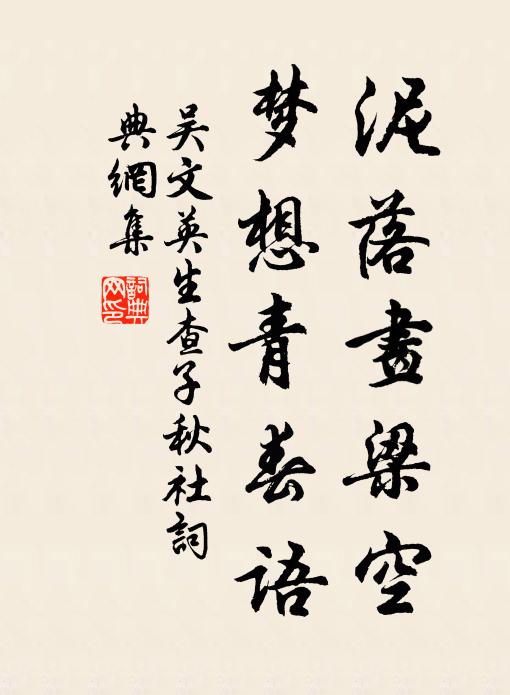 泥落畫梁空
梦想青春語
吴文英生查子秋社詞
典網集
詞典网印